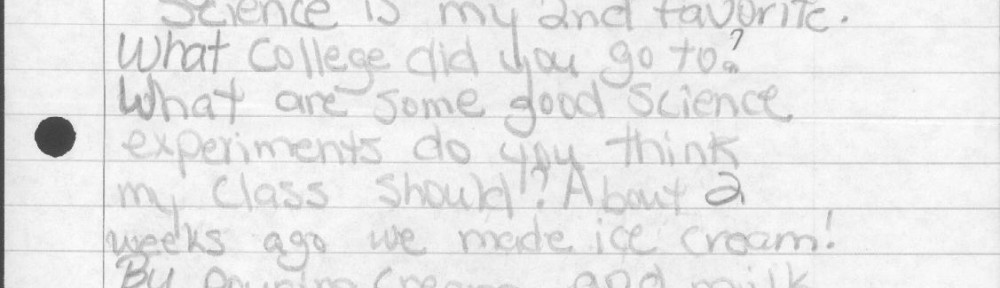 Science is my 2nd favorite.
What college did you go to?
What are some good science
experiments do you think
my class should!? About 2
weeks ago we made ice cream!
By pouring cream and milk